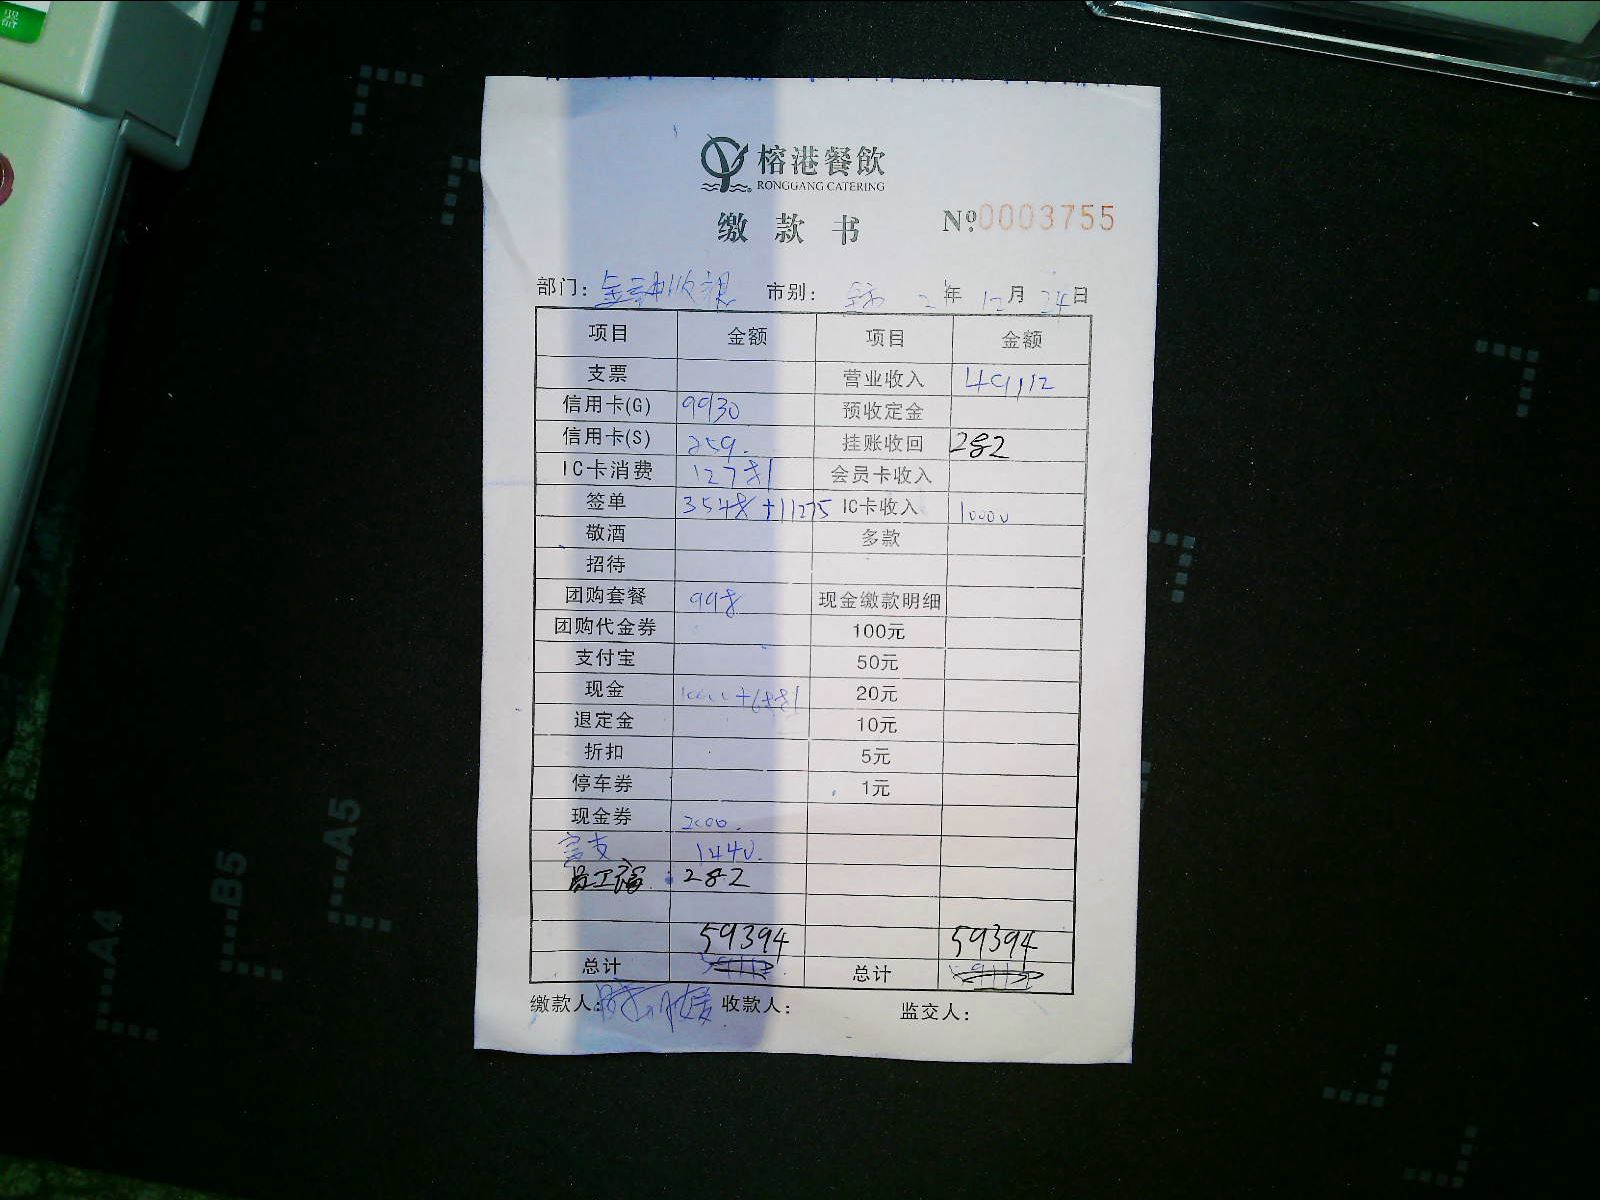 榕港餐飲
RONGGANG CATERING
缴款书 Nº.0003755
部门: 金融收银 市别: 2年12月24日
项目 金额 项目 金额
支票 营业收入 49112
信用卡(G) 9930 预收定金
信用卡(S) 259. 挂账收回 282
IC卡消费 12781 会员卡收入
签单 3548+11275 IC卡收入 10000
敬酒 多款
招待
团购套餐 998 现金缴款明细
团购代金券 100元
支付宝 50元
现金 10000+6881 20元
退定金 10元
折扣 5元
停车券 1元
现金券 2000.
1440.
员工 282
59394 59394
总计 总计
缴款人: 收款人: 监交人:
A5
B5
A4